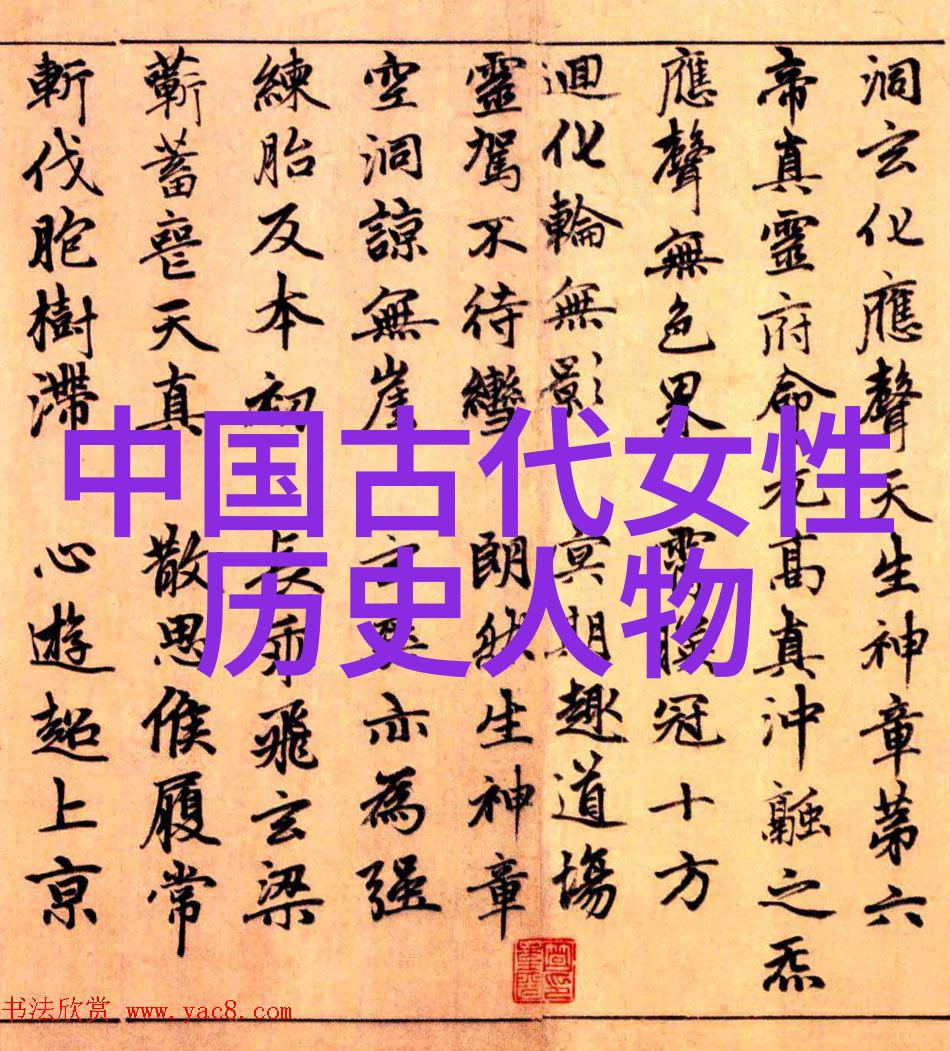 洞玄化應聲天生神章苐六
帝真靈府命元高真沖融之炁
應聲無色界 霄映冠十方
迴化輪無影 冥期趣道場
靈駕不待轡 朗然生神章
空洞諒無崖 玄爽亦為強
練胎反本初 長乘飛玄梁
蘄蓄喪天真 散思候履常
斬伐胞樹滯 心遊超上京
中国古代女性
历史人物
书法欣赏 www.yac8.com